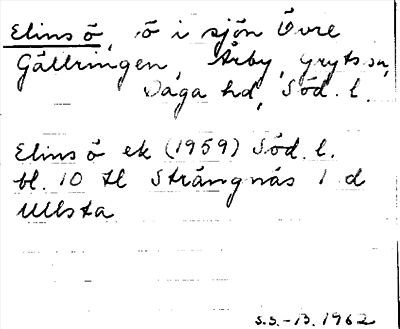 Elins ö, ö i sjön Övre
Gällringen, Årby, Gryts sn,
Daga hd, Söd. l.
Elins ö ek (1959) Söd. l.
bl. 10 H Strängnäs 1 d
Ullsta
S.S.-B. 1962